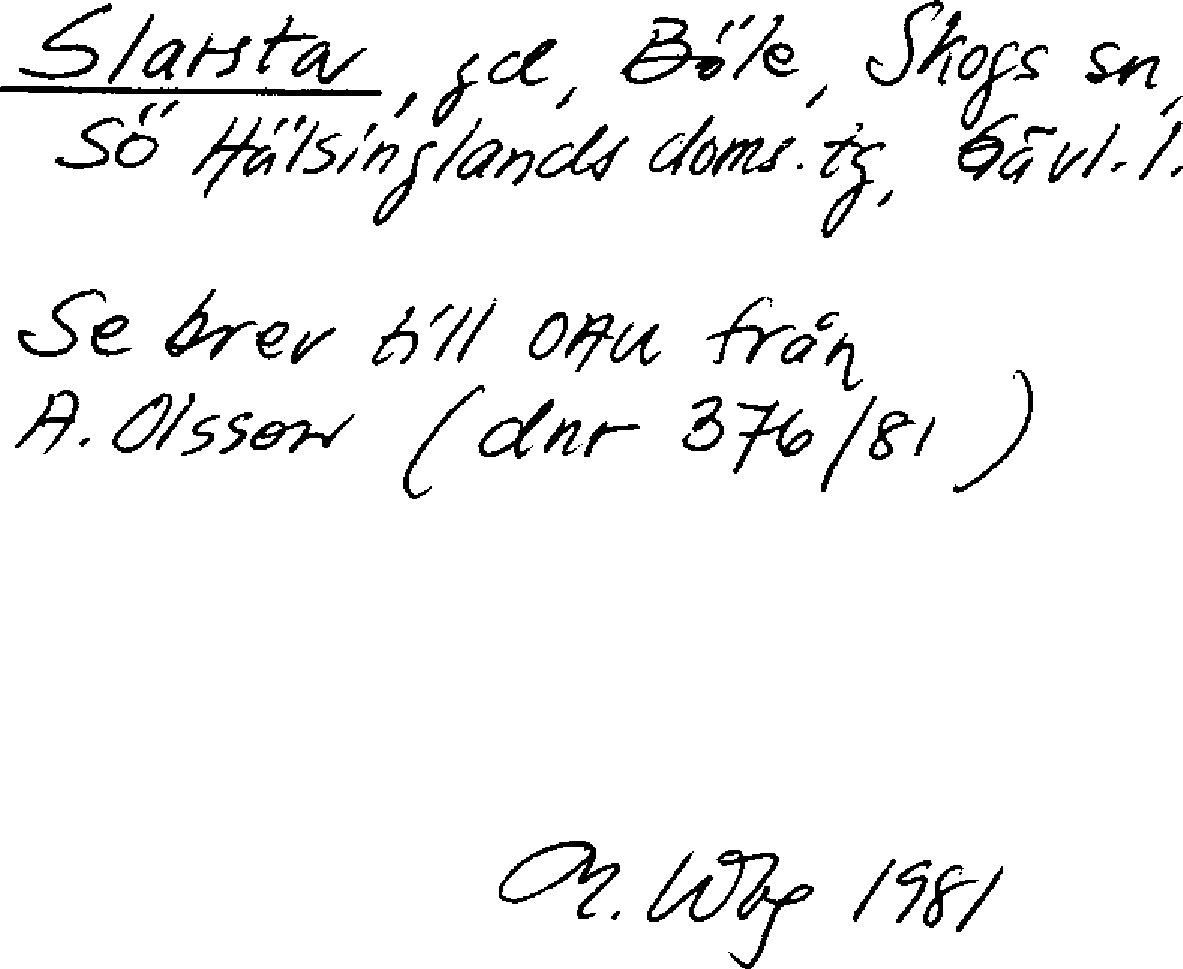 Slarsta, gd, Böle, Skogs sn,
Sö Hälsinglands doms.tg, Gävl.l.
Se brev till OAU från
A. Olsson (dnr 376/81)
M. Wbg 1981